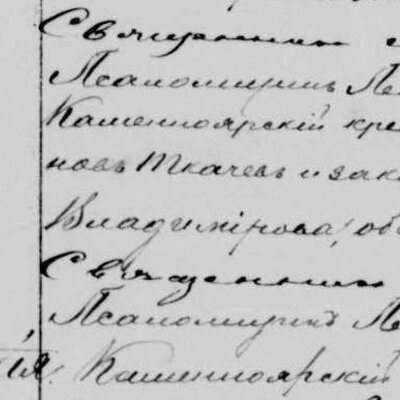 Священникъ
Псаломщикъ Ле
Каменноярскій кре
новъ Ткачевъ и зак
Владимірова, об
Священникъ
Псаломщикъ Ле
Каменноярскій